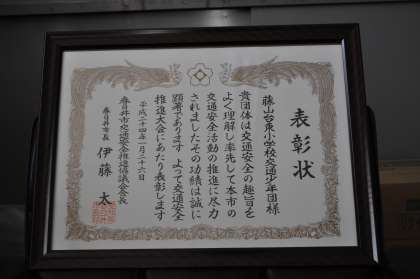 表彰状
藤山台東小学校交通少年団様
貴団体は交通安全の趣旨を
よく理解し率先して本市の
交通安全活動の推進に尽力
されましたその功績は誠に
顕著であります よって交通安全
推進大会にあたり表彰します
平成二十四年一月二十六日
春日井市交通安全推進協議会会長
春日井市長 伊藤 太